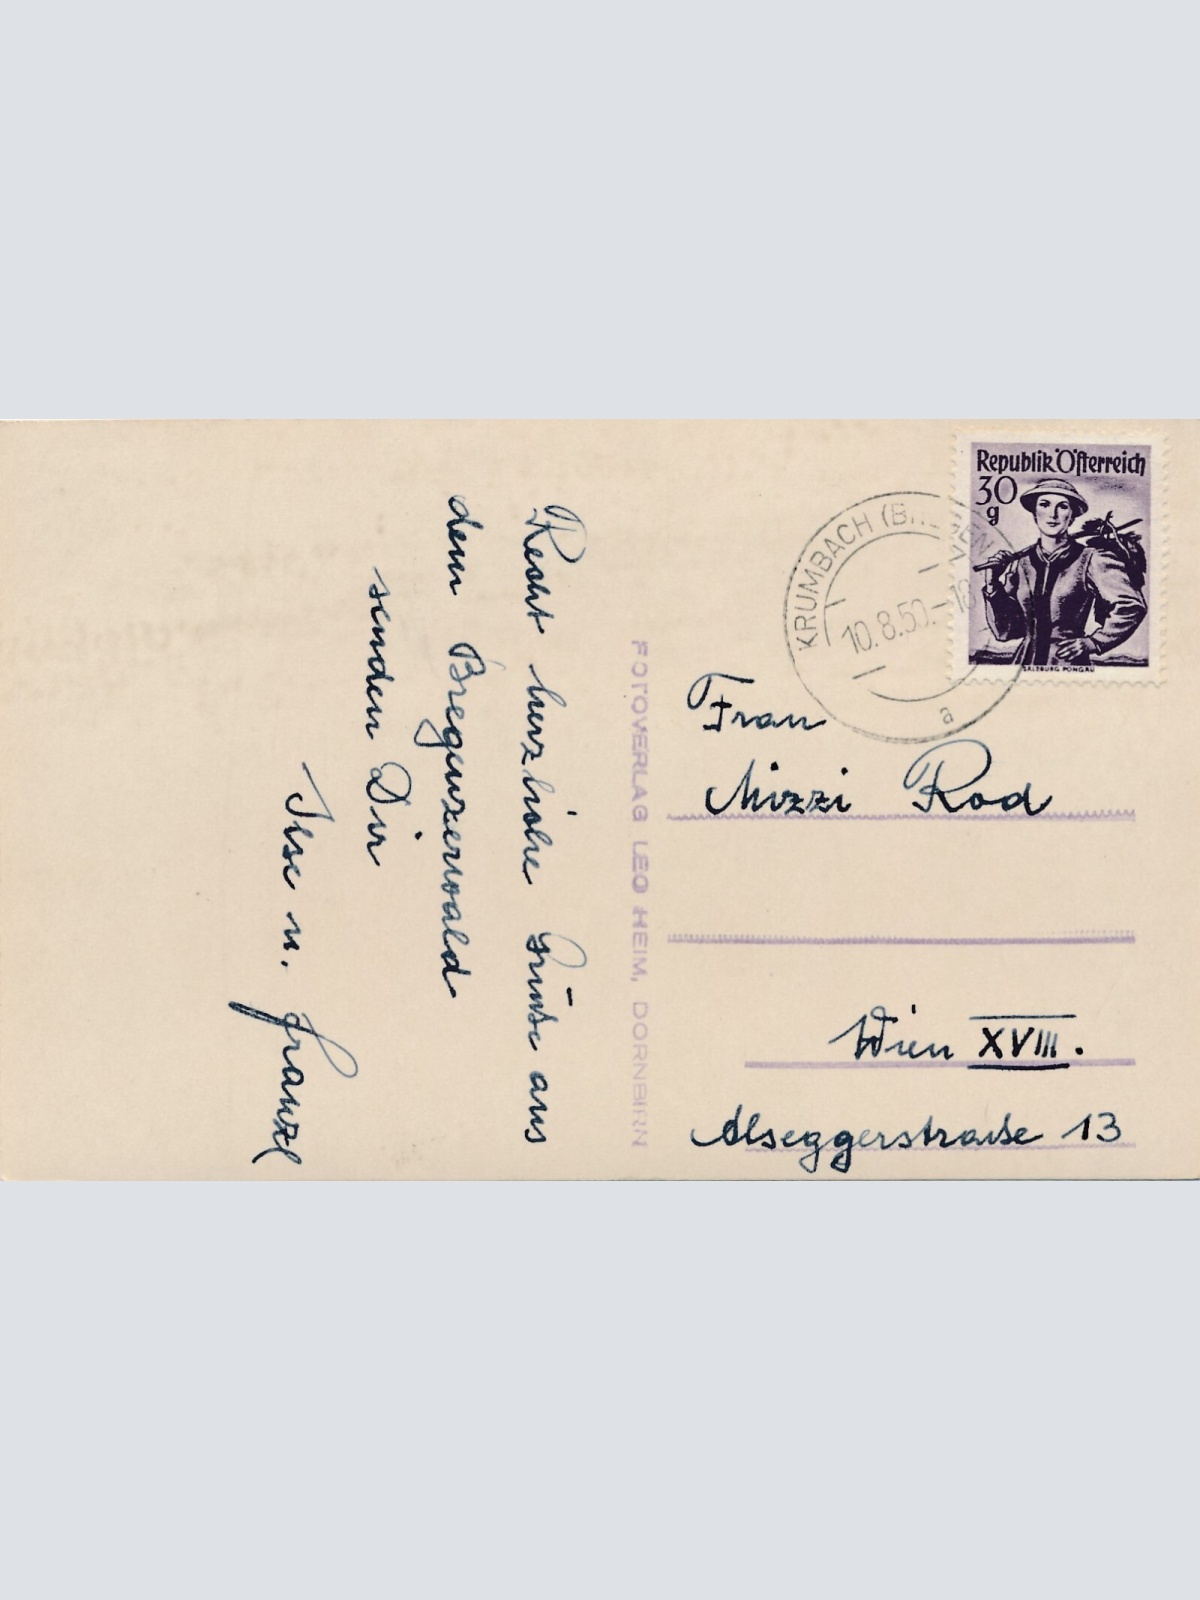 Recht herzliche Grüße aus
dem Bregenzerwald
senden Dir
Ilse u. Franzl
FOTOVERLAG LEO HEIM, DORNBIRN
Republik Österreich
30
g
SALZBURG PONGAU
KRUMBACH
10.8.50.-18
a
Frau
Mizzi Rod
Wien XVIII.
Alseggerstraße 13